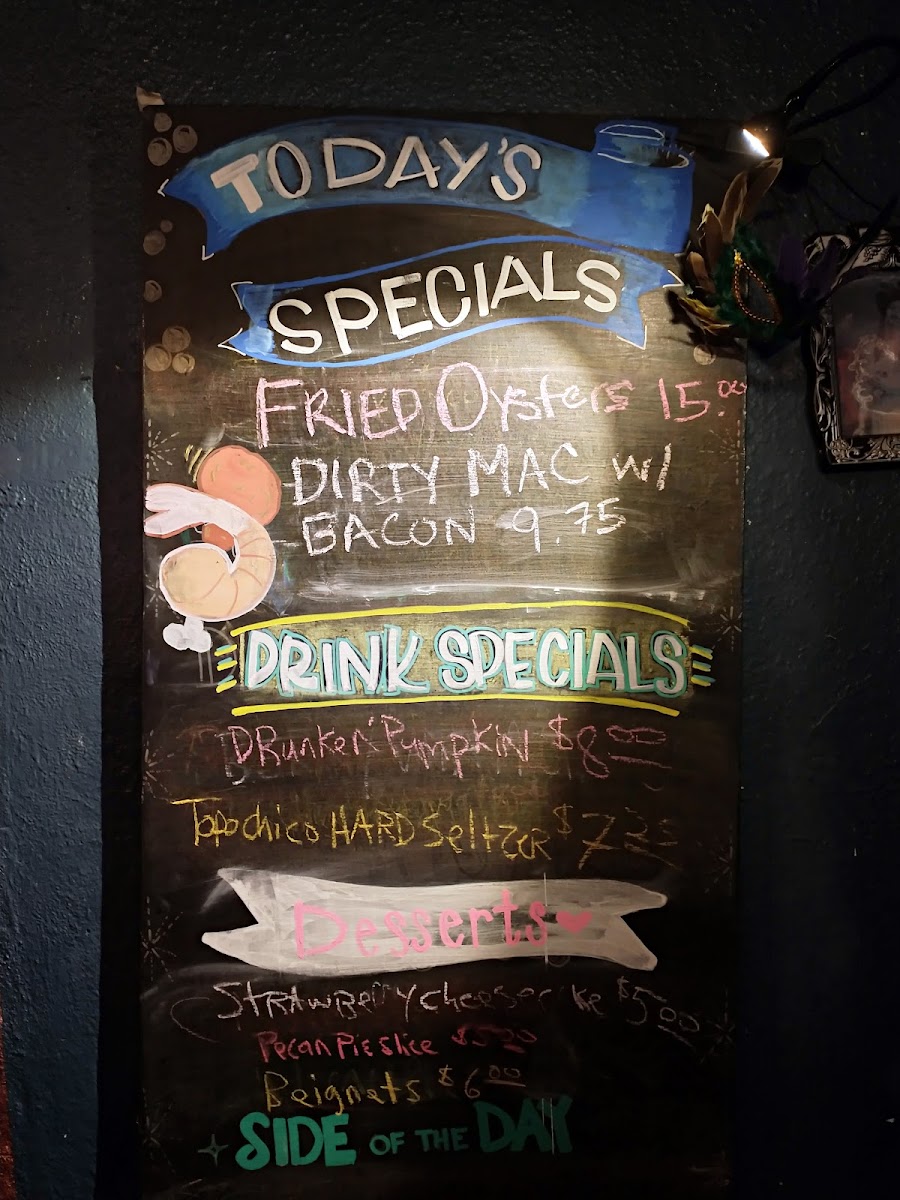 TODAY'S
SPECIALS
FRIED OYSTERS 15.00
DIRTY MAC W/
BACON 9.75
DRINK SPECIALS
DRunken Pumpkin $8.00
Topo chico HARD SeltzER $7.25
Desserts
STRAWBerry cheesecke $5.00
Pecan Pie slice $5.00
Beignets $6.00
SIDE OF THE DAY